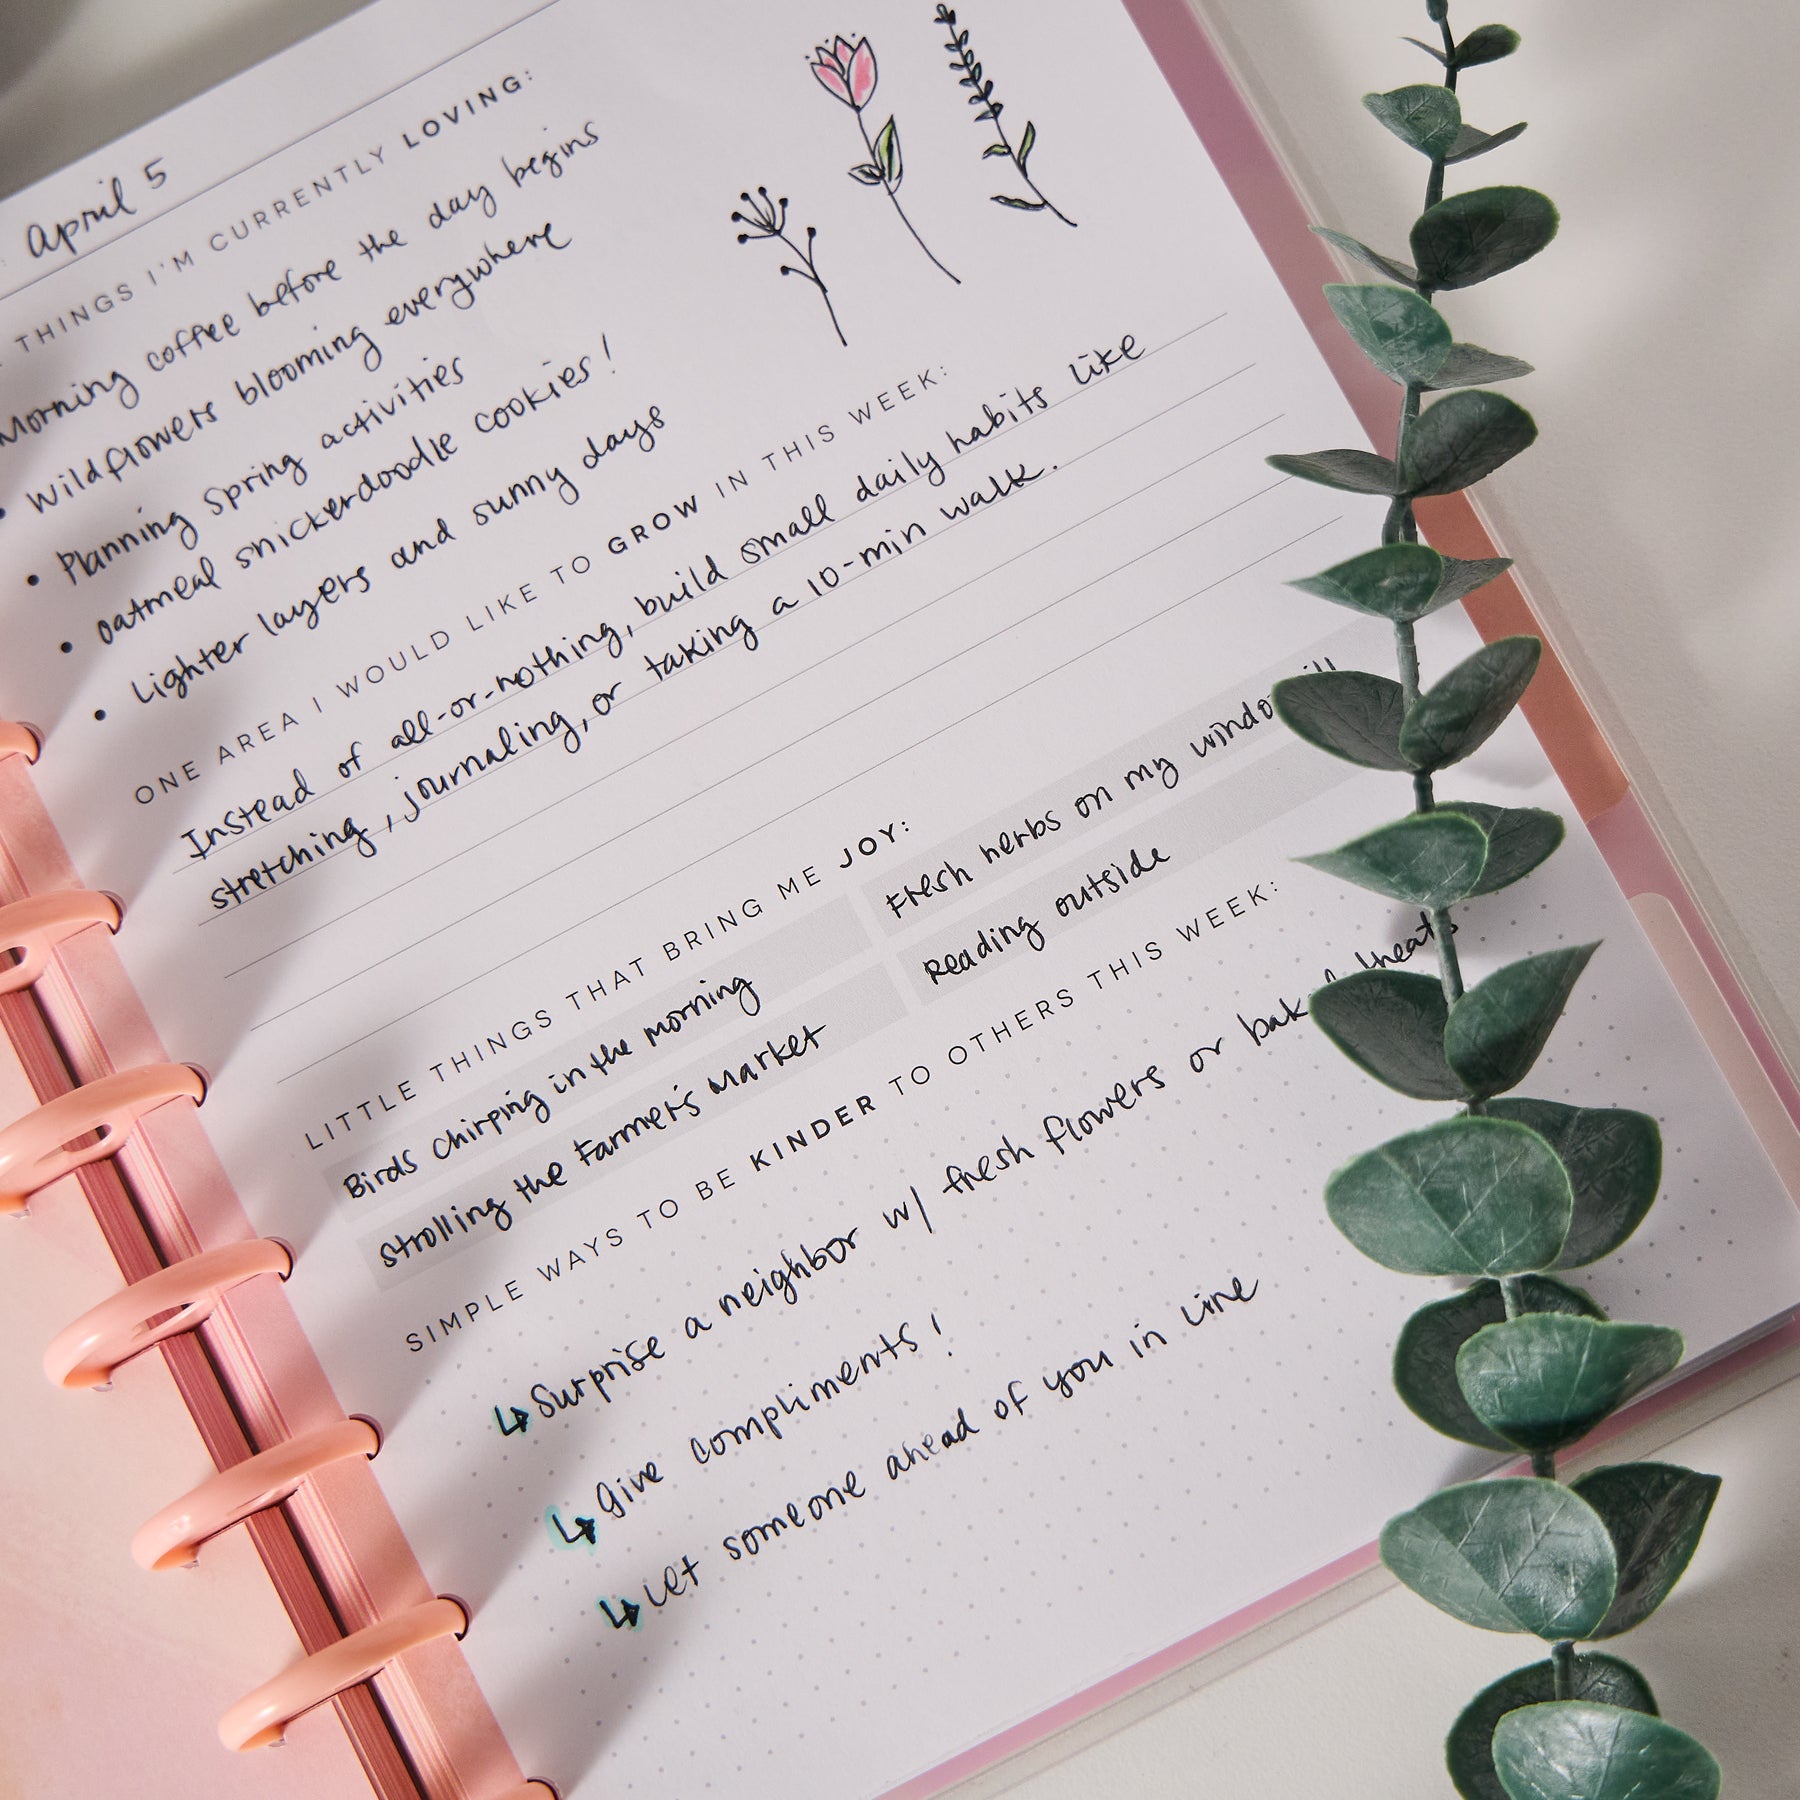 April 5
THINGS I'M CURRENTLY LOVING:
Morning coffee before the day begins
• Wildflowers blooming everywhere
• Planning Spring activities
• oatmeal snickerdoodle cookies!
• Lighter layers and sunny days
ONE AREA I WOULD LIKE TO GROW IN THIS WEEK:
Instead of all-or-nothing, build small daily habits like
stretching, journaling, or taking a 10-min walk.
LITTLE THINGS THAT BRING ME JOY:
Birds chirping in the morning
Fresh herbs on my
Strolling the Farmer's Market
Reading outside
SIMPLE WAYS TO BE KINDER TO OTHERS THIS WEEK:
↳ Surprise a neighbor w/ fresh flowers or treats
↳ Give compliments!
↳ Let someone ahead of you in line